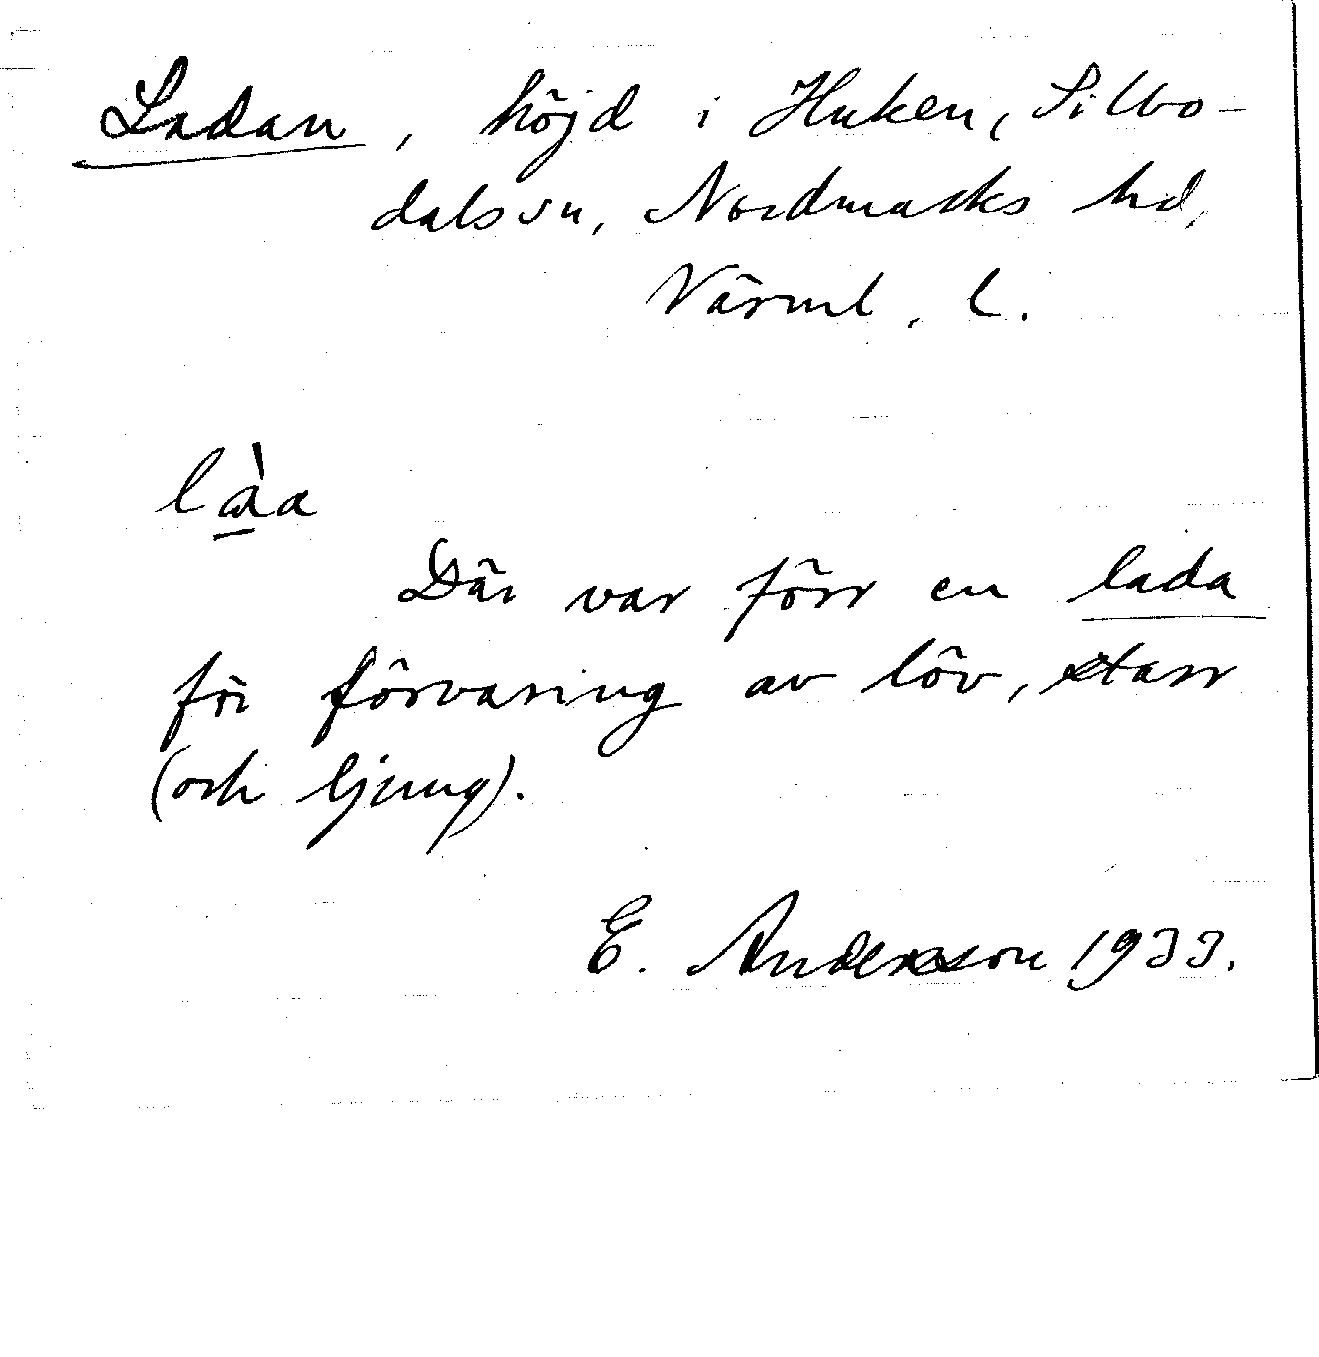 Ladan, höjd i Huken, Silbo-
dals sn, Nordmarks hd,
Värml. l.
là̱a
Där var förr en lada
för förvaring av löv, starr
(och ljung).
E. Anderson 1933.